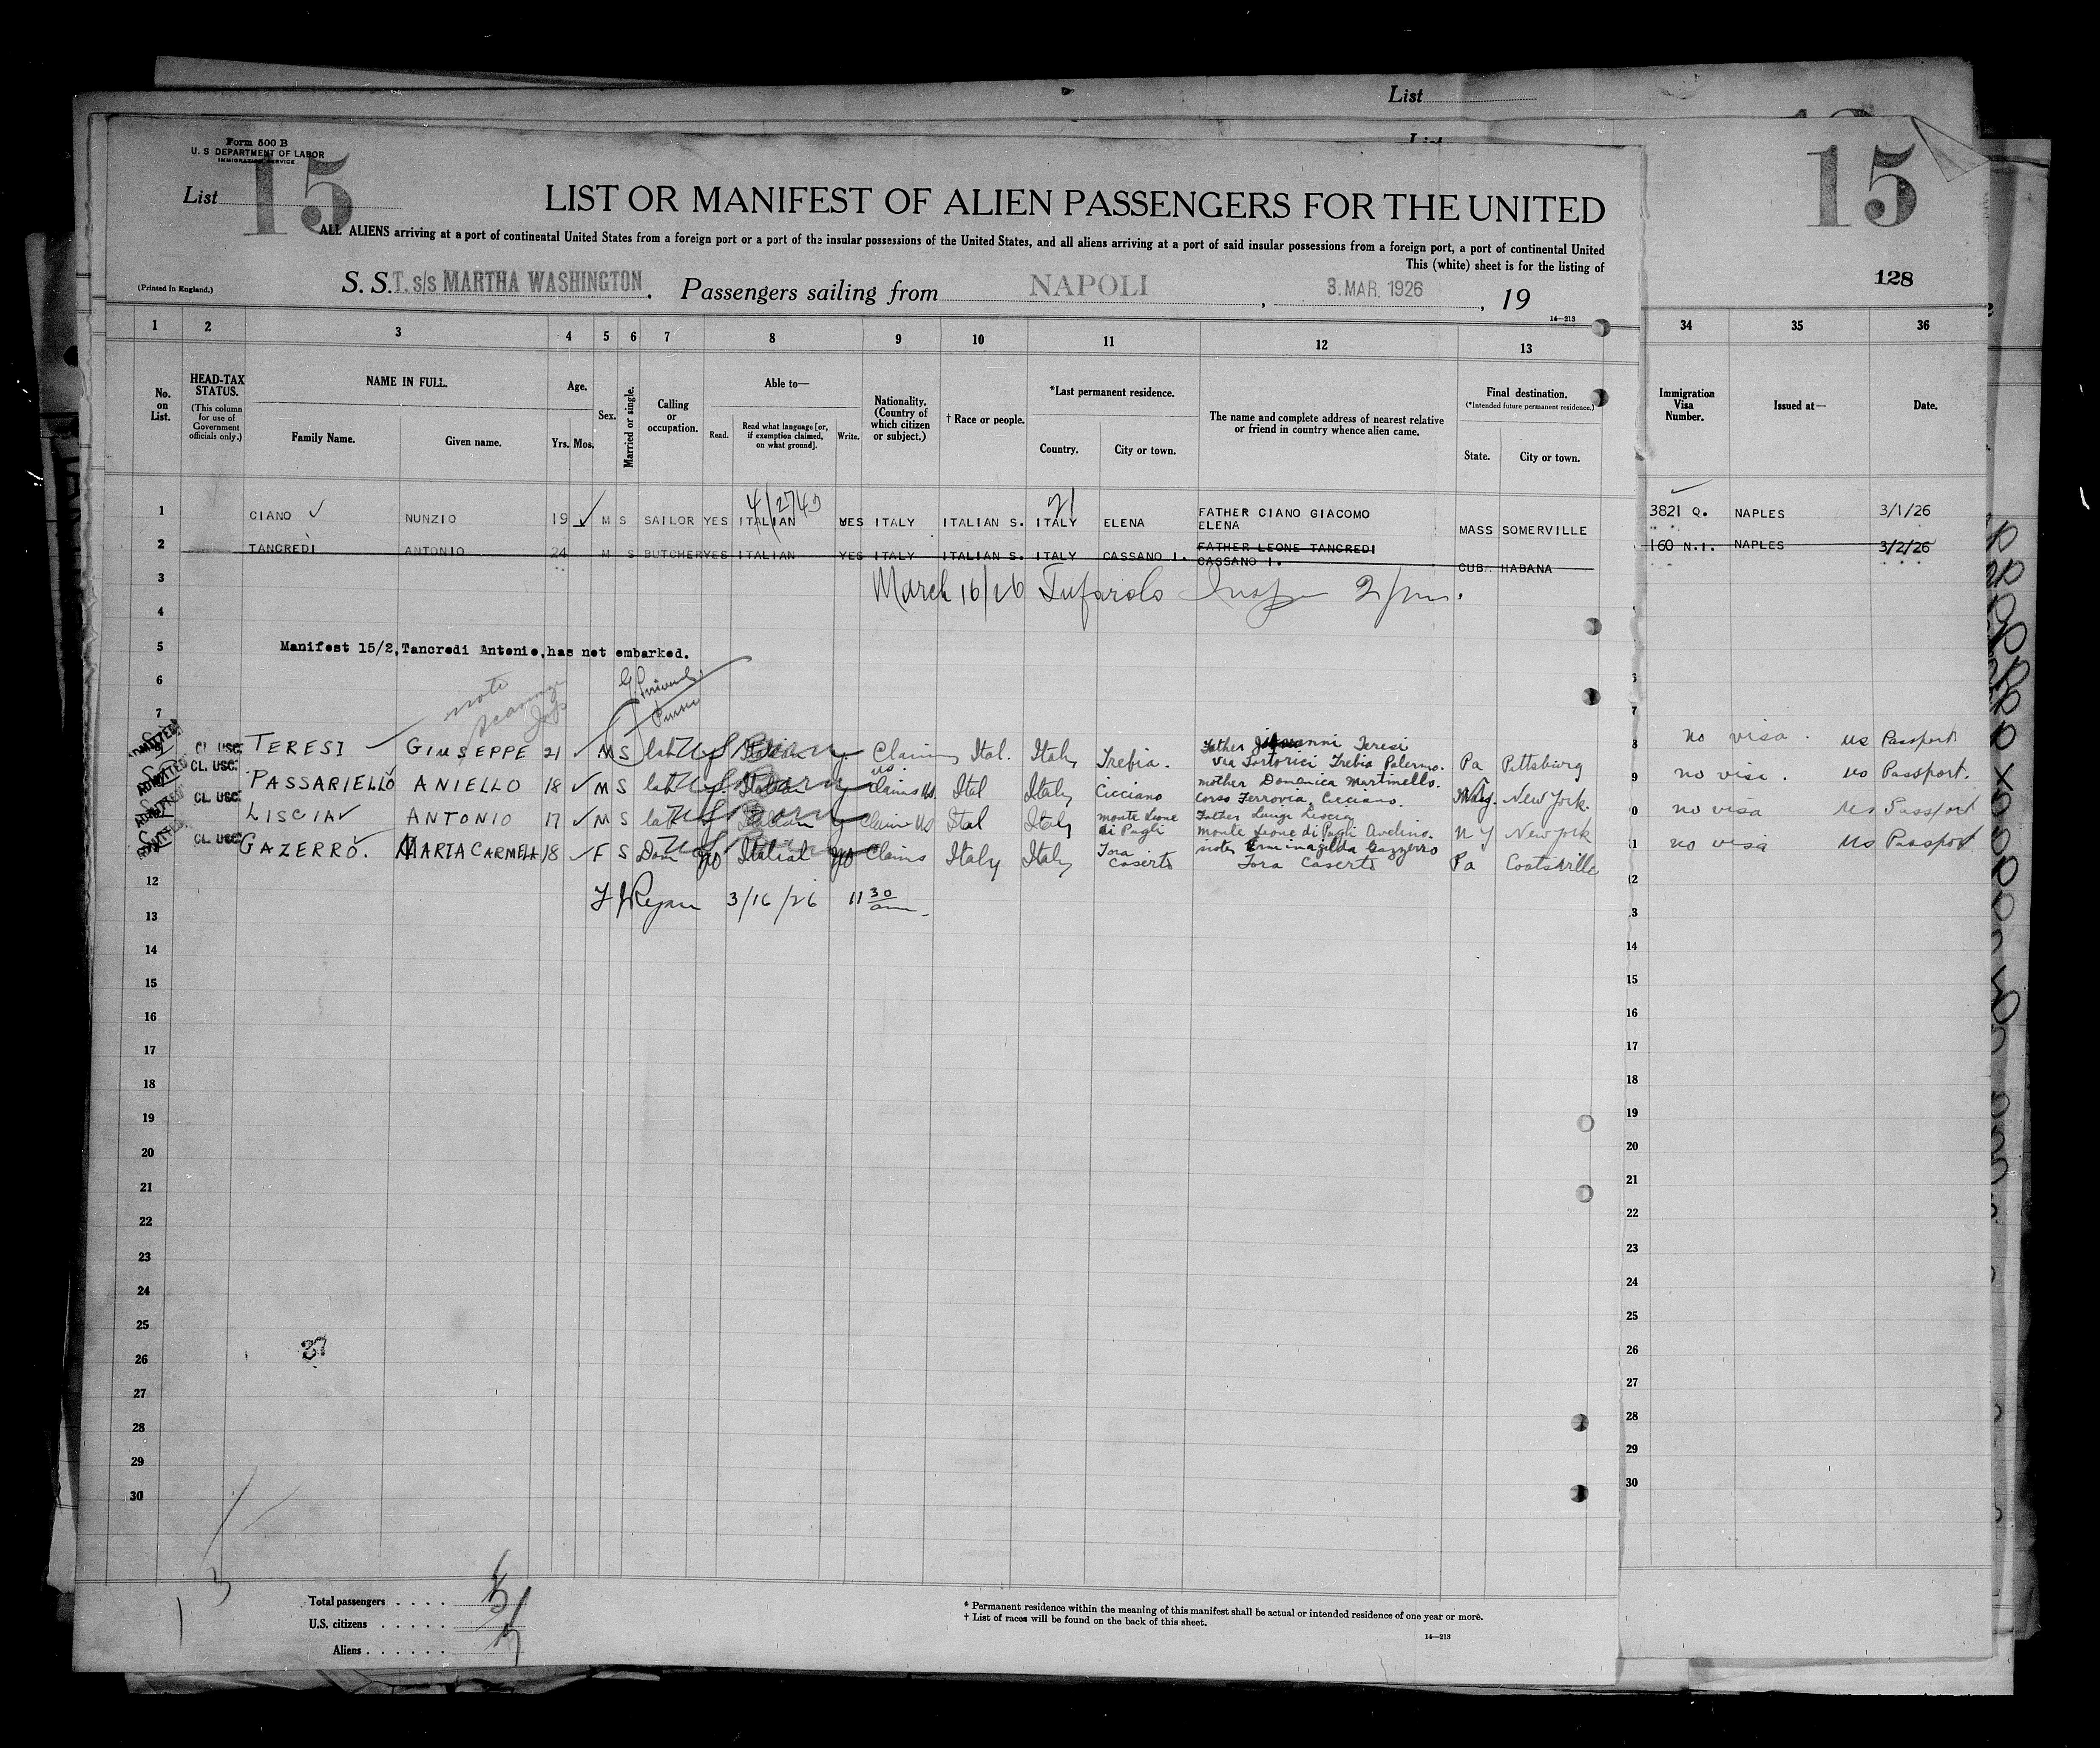 List
List
Form 500 B
U. S DEPARTMENT OF LABOR
IMMIGRATION SERVICE
List 15
15
LIST OR MANIFEST OF ALIEN PASSENGERS FOR THE UNITED
ALL ALIENS arriving at a port of continental United States from a foreign port or a port of the insular possessions of the United States, and all aliens arriving at a port of said insular possessions from a foreign port, a port of continental United
This (white) sheet is for the listing of
128
(Printed in England.)
S. S. T. s/s MARTHA WASHINGTON. Passengers sailing from NAPOLI, 3. MAR. 1926, 19
14—213
1 2 3 4 5 6 7 8 9 10 11 12 13 34 35 36
No. on List.
HEAD-TAX STATUS.
(This column for use of Government officials only.)
NAME IN FULL.
Family Name. Given name.
Age.
Yrs. Mos.
Sex.
Married or single.
Calling or occupation.
Able to—
Read. Read what language [or, if exemption claimed, on what ground]. Write.
Nationality. (Country of which citizen or subject.)
† Race or people.
*Last permanent residence.
Country. City or town.
The name and complete address of nearest relative or friend in country whence alien came.
Final destination.
(*Intended future permanent residence.)
State. City or town.
Immigration Visa Number.
Issued at—
Date.
4/2743 21
1 CIANO NUNZIO 19 M S SAILOR YES ITALIAN YES ITALY ITALIAN S. ITALY ELENA FATHER CIANO GIACOMO ELENA MASS SOMERVILLE 3821 Q. NAPLES 3/1/26
2 TANCREDI ANTONIO 24 M S BUTCHER YES ITALIAN YES ITALY ITALIAN S. ITALY CASSANO I. FATHER LEONE TANCREDI CASSANO I. CUB. HABANA 160 N.I. NAPLES 3/2/26
3 March 16/26 Tufarolo Insp 2 pm.
4
5 Manifest 15/2, Tancredi Antonio, has not embarked.
6
7
note
ADMITTED CL. USC. TERESI GIUSEPPE 21 M S lab US Born Italian y. Claims us. Ital. Italy Trebia. Father Teresi Via Tortorici Trebia Palermo. Pa Pittsburg 8 no visa. us Passport
ADMITTED CL. USC. PASSARIELLO ANIELLO 18 M S lab US Born Italian y Claims US Ital Italy Cicciano mother Domenica Martinello. Corso Ferrovia, Cicciano. New York. 9 no visa. us Passport.
ADMITTED CL. USC. LISCIA ANTONIO 17 M S lab US Born Italian y Claims US Ital Italy monte Leone di Pugli Father Luigi Liscia monte Leone di Pugli Avelino. N Y New York 0 no visa us Passport
CL. USC. GAZERRO. MARIA CARMELA 18 F S Dom no US Born Italial no Claims Italy Italy Tora Caserta Erminagilda Gazzerro Tora Caserta Pa Coatsville 1 no visa us Passport
12 F J Ryan 3/16/26 11 30 am. 12
13 13
14 14
15 15
16 16
17 17
18 18
19 19
20 20
21 21
22 22
23 23
24 24
25 25
37
26 26
27 27
28 28
29 29
30 30
Total passengers . . . .
U.S. citizens . . . . . .
Aliens . . . . . . .
* Permanent residence within the meaning of this manifest shall be actual or intended residence of one year or more.
† List of races will be found on the back of this sheet.
14—213